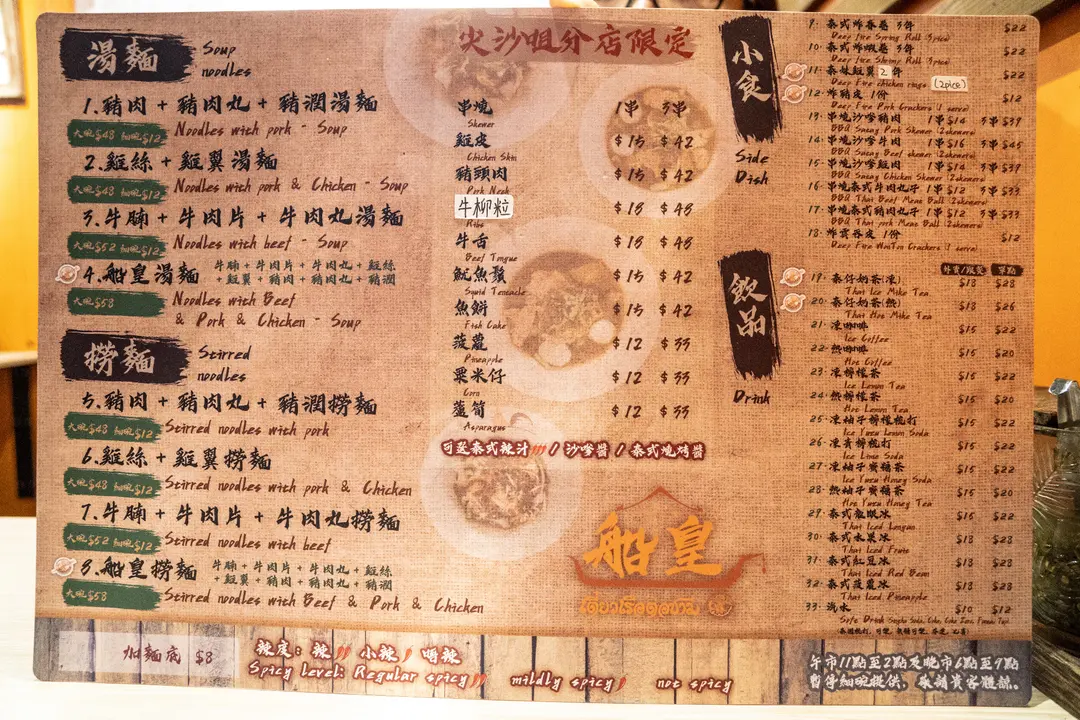 湯麵 Soup noodles
1.豬肉 + 豬肉丸 + 豬潤湯麵
大碗$48 細碗$12 Noodles with pork - Soup
2.雞絲 + 雞翼湯麵
大碗$48 細碗$12 Noodles with pork & Chicken - Soup
3.牛腩 + 牛肉片 + 牛肉丸湯麵
大碗$52 細碗$12 Noodles with beef - Soup
4.船皇湯麵 牛腩 + 牛肉片 + 牛肉丸 + 雞絲
+ 雞翼 + 豬肉 + 豬肉丸 + 豬潤
大碗$58 Noodles with Beef
& Pork & Chicken - Soup
撈麵 Stirred noodles
5.豬肉 + 豬肉丸 + 豬潤撈麵
大碗$48 細碗$12 Stirred noodles with pork
6.雞絲 + 雞翼撈麵
大碗$48 細碗$12 Stirred noodles with pork & Chicken
7.牛腩 + 牛肉片 + 牛肉丸撈麵
大碗$52 細碗$12 Stirred noodles with beef
8.船皇撈麵 牛腩 + 牛肉片 + 牛肉丸 + 雞絲
+ 雞翼 + 豬肉 + 豬肉丸 + 豬潤
大碗$58 Stirred noodles with Beef & Pork & Chicken
尖沙咀分店限定
串燒 1串 3串
Skewer
雞皮 $15 $42
Chicken Skin
豬頸肉 $15 $42
Pork Neck
牛柳粒 $18 $48
Ribs
牛舌 $18 $48
Beef Tongue
魷魚鬚 $15 $42
Squid Tentacle
魚餅 $15 $42
Fish Cake
菠蘿 $12 $33
Pineapple
粟米仔 $12 $33
Corn
蘆筍 $12 $33
Asparagus
可選泰式辣汁 / 沙嗲醬 / 泰式燒烤醬
船皇
小食
Side Dish
9. 泰式炸春卷 3件 $22
Deep Fire Spring Roll 3pics
10. 泰式炸蝦卷 3件
Deep Fire Shrimp Roll 3pics
11. 泰妹雞翼 2 件 $22
Deep Fire chicken rings (2pice)
12. 炸豬皮 1份 $12
Deep Fire Pork Crackers (1 serve)
13. 串燒沙嗲豬肉 1串 $14 3串 $39
BBQ Satay Pork Skewer (2skewers)
14. 串燒沙嗲牛肉 1串 $16 3串 $45
BBQ Satay Beef skewer (2skewers)
15. 串燒沙嗲雞肉 1串 $14 3串 $39
BBQ Satay Chicken Skewer (2skewers)
16. 串燒泰式牛肉丸子 1串 $12 3串 $33
BBQ Thai Beef Meat Ball (2skewers)
17. 串燒泰式豬肉丸子 1串 $12 3串 $33
BBQ Thai pork Meat Ball (2skewers)
18. 炸雲吞皮 1份 $12
Deep Fire WonTon Crackers (1 serve)
飲品
Drink
外賣/跟餐 單點
19. 泰仔奶茶(凍) $18 $28
Thai Ice Milk Tea
20. 泰仔奶茶(熱) $18 $26
Thai Hot Milk Tea
21. 凍咖啡 $15 $22
Ice Coffee
22. 熱咖啡 $15 $20
Hot Coffee
23. 凍檸檬茶 $15 $22
Ice Lemon Tea
24. 熱檸檬茶 $15 $20
Hot Lemon Tea
25. 凍柚子檸檬梳打 $15 $22
Ice Yuzu Lemon Soda
26. 凍青檸梳打 $15 $22
Ice Lime Soda
27. 凍柚子蜜糖茶 $15 $22
Ice Yuzu Honey Soda
28. 熱柚子蜜糖茶 $15 $20
Hot Yuzu Honey Tea
29. 泰式龍眼冰 $15 $22
Thai Iced Longan
30. 泰式水果冰 $18 $28
Thai Iced Fruits
31. 泰式紅豆冰 $18 $28
Thai Iced Red Bean
32. 泰式菠蘿冰 $18 $28
Thai Iced Pineapple
33. 汽水 $10 $12
加麵底 $8
辣度: 辣 小辣 唔辣
Spicy level: Regular spicy mildly spicy not spicy
午市11點至2點及晚市6點至9點
暫停細碗提供, 敬請貴客體諒。